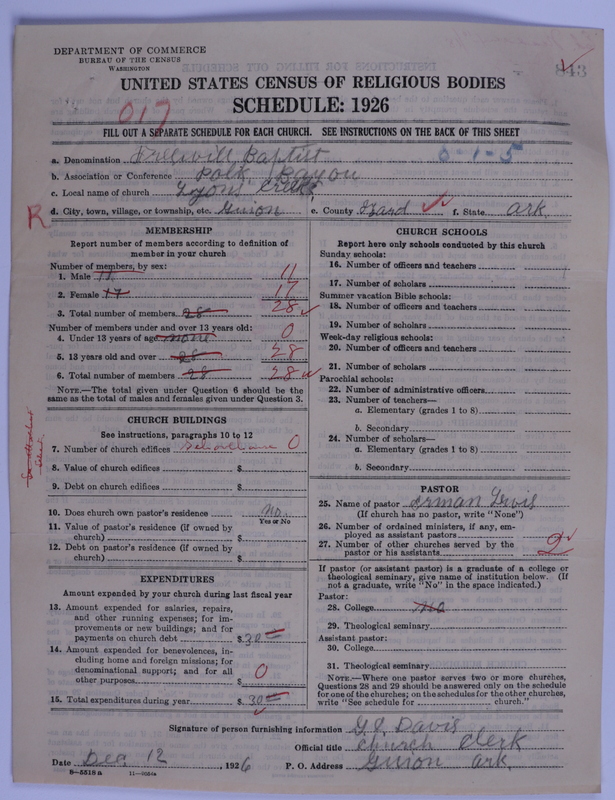 DEPARTMENT OF COMMERCE
BUREAU OF THE CENSUS
WASHINGTON
843
UNITED STATES CENSUS OF RELIGIOUS BODIES
SCHEDULE: 1926
017
FILL OUT A SEPARATE SCHEDULE FOR EACH CHURCH. SEE INSTRUCTIONS ON THE BACK OF THIS SHEET
a. Denomination Baptist 6-1-5
b. Association or Conference Polk Bayou
c. Local name of church Lyons Creek
R d. City, town, village, or township, etc. Guion e. County Izard f. State Ark.
MEMBERSHIP
Report number of members according to definition of
member in your church
Number of members, by sex:
1. Male 11 11
2. Female 17 17
3. Total number of members 28 28
Number of members under and over 13 years old:
4. Under 13 years of age none 0
5. 13 years old and over 28 28
6. Total number of members 28 28
NOTE.—The total given under Question 6 should be
same as the total of males and females given under Question 3.
CHURCH BUILDINGS
See instructions, paragraphs 10 to 12
7. Number of church edifices Schoolhouse 0
8. Value of church edifices $
9. Debt on church edifices $
10. Does church own pastor's residence no.
Yes or No
11. Value of pastor's residence (if owned by
church) $
12. Debt on pastor's residence (if owned by
church) $
EXPENDITURES
Amount expended by your church during last fiscal year
13. Amount expended for salaries, repairs,
and other running expenses; for im-
provements or new buildings; and for
payments on church debt $ 30
14. Amount expended for benevolences, in-
cluding home and foreign missions; for
denominational support; and for all
other purposes $ 0
15. Total expenditures during year $ 30
CHURCH SCHOOLS
Report here only schools conducted by this church
Sunday schools:
16. Number of officers and teachers
17. Number of scholars
Summer vacation Bible schools:
18. Number of officers and teachers
19. Number of scholars
Week-day religious schools:
20. Number of officers and teachers
21. Number of scholars
Parochial schools:
22. Number of administrative officers
23. Number of teachers—
a. Elementary (grades 1 to 8)
b. Secondary
24. Number of scholars—
a. Elementary (grades 1 to 8)
b. Secondary
PASTOR
25. Name of pastor
(If church has no pastor, write "None")
26. Number of ordained ministers, if any, em-
ployed as assistant pastors
27. Number of other churches served by the
pastor or his assistants 2
If pastor (or assistant pastor) is a graduate of a college or
theological seminary, give name of institution below. (If
not a graduate, write "No" in the space indicated.)
Pastor:
28. College no
29. Theological seminary
Assistant pastor:
30. College
31. Theological seminary
NOTE.—Where one pastor serves two or more churches,
Questions 28 and 29 should be answered only on the schedule
for one of the churches; on the schedules for the other churches,
write "See schedule for church."
Signature of person furnishing information Davis
Official title Church Clerk
Date Dec, 12, 1926 P. O. Address Guion Ark.
8—5518a 11—9054a